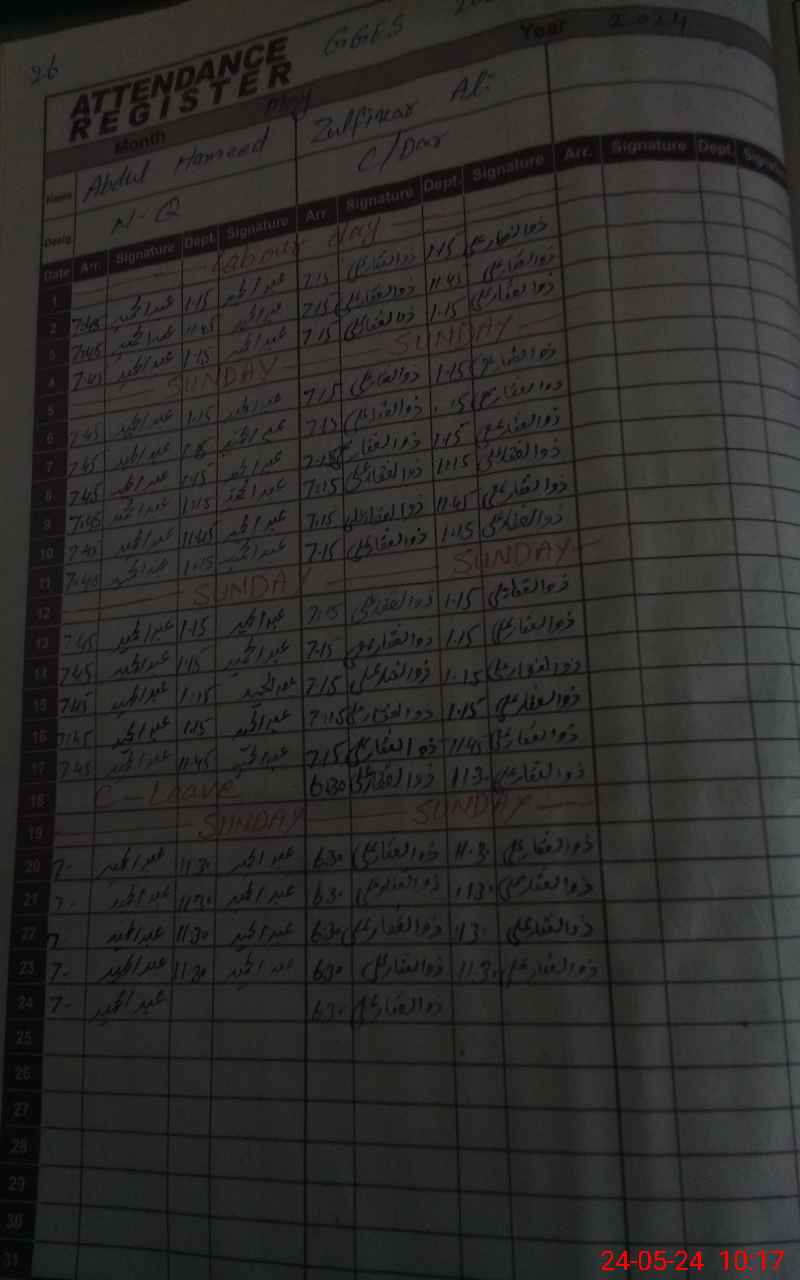 26
GGES
ATTENDANCE
REGISTER
Month May Year 2024
Name Abdul Hameed Zulfikar Ali
Desig. N-Q C/Dar
Date Arr. Signature Dept. Signature Arr Signature Dept. Signature Arr. Signature Dept.
1 Labour day
2 7:45 عبدالحمید 1:15 عبدالحمید 7:15 ذوالفقار علی 1:15 ذوالفقار علی
3 7:45 عبدالحمید 11:45 عبدالحمید 7:15 ذوالفقار علی 11:45 ذوالفقار علی
4 7:45 عبدالحمید 1:15 عبدالحمید 7:15 ذوالفقار علی 1:15 ذوالفقار علی
5 SUNDAY SUNDAY
6 7:45 عبدالحمید 1:15 عبدالحمید 7:15 ذوالفقار علی 1:15 ذوالفقار علی
7 7:45 عبدالحمید عبدالحمید 7:15 ذوالفقار علی ذوالفقار علی
8 7:45 عبدالحمید 1:15 عبدالحمید 7:15 ذوالفقار علی 1:15 ذوالفقار علی
9 7:45 عبدالحمید 1:15 عبدالحمید 7:15 ذوالفقار علی 1:15 ذوالفقار علی
10 7:45 عبدالحمید 11:45 عبدالحمید 7:15 ذوالفقار علی 11:45 ذوالفقار علی
11 7:45 عبدالحمید 1:15 عبدالحمید 7:15 ذوالفقار علی 1:15 ذوالفقار علی
12 SUNDAY SUNDAY
13 7:45 عبدالحمید 1:15 عبدالحمید 7:15 ذوالفقار علی 1:15 ذوالفقار علی
14 7:45 عبدالحمید 1:15 عبدالحمید 7:15 ذوالفقار علی 1:15 ذوالفقار علی
15 7:45 عبدالحمید 1:15 عبدالحمید 7:15 ذوالفقار علی 1:15 ذوالفقار علی
16 7:45 عبدالحمید 1:15 عبدالحمید 7:15 ذوالفقار علی 1:15 ذوالفقار علی
17 7:45 عبدالحمید 11:45 عبدالحمید 7:15 ذوالفقار علی 11:45 ذوالفقار علی
18 C-Leave 6:30 ذوالفقار علی 11:30 ذوالفقار علی
19 SUNDAY SUNDAY
20 7- عبدالحمید 11:30 عبدالحمید 6:30 ذوالفقار علی 11:30 ذوالفقار علی
21 7- عبدالحمید 11:30 عبدالحمید 6:30 ذوالفقار علی 11:30 ذوالفقار علی
22 7 عبدالحمید 11:30 عبدالحمید 6:30 ذوالفقار علی 11:30 ذوالفقار علی
23 7- عبدالحمید 11:30 عبدالحمید 6:30 ذوالفقار علی 11:30 ذوالفقار علی
24 7- عبدالحمید 6:30 ذوالفقار علی
25
26
27
28
29
30
31
24-05-24 10:17